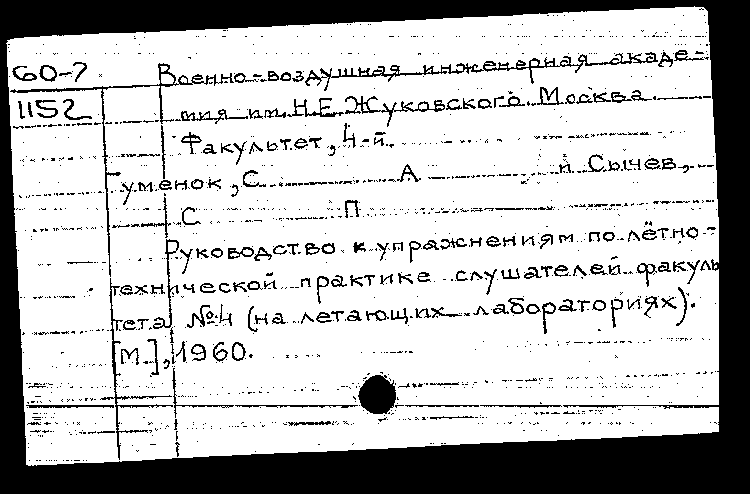 60-7 Военно-воздушная инженерная акаде-
1152 мия им. Н.Е. Жуковского. Москва.
Факультет, 4-й.
уменок, С А и Сычев,
С П
Руководство к упражнениям по лётно-
технической практике слушателей факуль
тета №4 (на летающих лабораториях).
[М.], 1960.